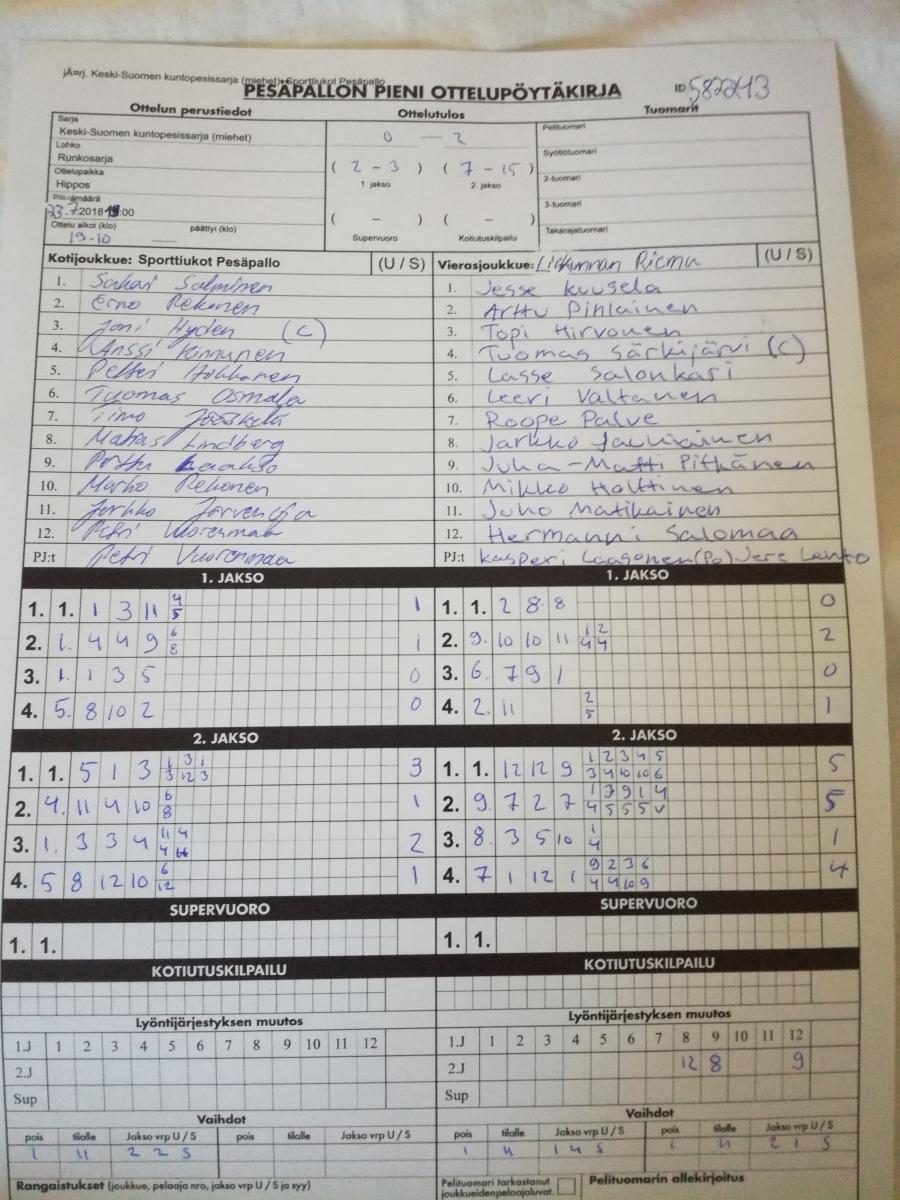 jÃ¤rj. Keski-Suomen kuntopesissarja (miehet) Sporttiukot Pesäpallo
PESÄPALLON PIENI OTTELUPÖYTÄKIRJA
ID
Ottelun perustiedot Ottelutulos Tuomarit
Sarja
Keski-Suomen kuntopesissarja (miehet) 0 – 2 Pelituomari
Lohko
Runkosarja Syöttötuomari
Ottelupaikka ( 2 – 3 ) ( 7 – 15 )
Hippos 1. jakso 2. jakso 2-tuomari
Päivämäärä
23.7.2018 :00 ( – ) ( – ) 3-tuomari
Ottelu alkoi (klo) päättyi (klo) Supervuoro Kotiutuskilpailu Takarajatuomari
19.10
Kotijoukkue: Sporttiukot Pesäpallo (U / S) Vierasjoukkue: Riemu (U / S)
1. Sakari Salminen 1. Jesse Kuusela
2. Erno Pekonen 2. Arttu Pihlainen
3. Joni Hyden (C) 3. Topi Hirvonen
4. Anssi Kinnunen 4. Tuomas Särkijärvi (C)
5. Petteri 5. Lasse Salonkari
6. Tuomas Osmala 6. Leevi Valtanen
7. Timo Jääskelä 7. Roope Palve
8. Matias Lindberg 8. Jarkko Jauhiainen
9. Perttu Laakso 9. Juha-Matti Pitkänen
10. Marko Pekonen 10. Mikko Halttinen
11. Jarkko Järvenoja 11. Juho Matikainen
12. Petri Vuorenmaa 12. Hermanni Salomaa
PJ:t Petri Vuorenmaa PJ:t Kasperi Laasonen (Pa) Jere
1. JAKSO 1. JAKSO
1. 1. 1 3 11 4/5 1 1. 1. 2 8 8 0
2. 1. 4 4 9 6/8 1 2. 9. 10 10 11 1/4 2/4 2
3. 1. 1 3 5 0 3. 6. 7 9 1 0
4. 5. 8 10 2 0 4. 2. 11 2/5 1
2. JAKSO 2. JAKSO
1. 1. 5 1 3 1/3 3/12 1/3 3 1. 1. 12 12 9 1/3 2/4 3/10 4/10 5/6 5
2. 4. 11 4 10 6/8 1 2. 9. 7 2 7 1/4 3/5 9/5 1/5 4/V 5
3. 1. 3 3 4 11/4 2 3. 8. 3 5 10 1/4 1
4. 5 8 12 10 6/12 1 4. 7 1 12 1 9/4 2/4 3/10 6/9 4
SUPERVUORO SUPERVUORO
1. 1. 1. 1.
KOTIUTUSKILPAILU KOTIUTUSKILPAILU
Lyöntijärjestyksen muutos Lyöntijärjestyksen muutos
1.J 1 2 3 4 5 6 7 8 9 10 11 12 1.J 1 2 3 4 5 6 7 8 9 10 11 12
2.J 2.J 12 8 9
Sup Sup
Vaihdot Vaihdot
pois tilalle Jakso vrp U / S pois tilalle Jakso vrp U / S pois tilalle Jakso vrp U / S pois tilalle Jakso vrp U / S
1 11 2 2 S 1 4 1 4 S 2 1 S
Rangaistukset (joukkue, pelaaja nro, jakso vrp U / S ja syy) Pelituomari tarkastanut joukkueidenpelaajaluvat. Pelituomarin allekirjoitus